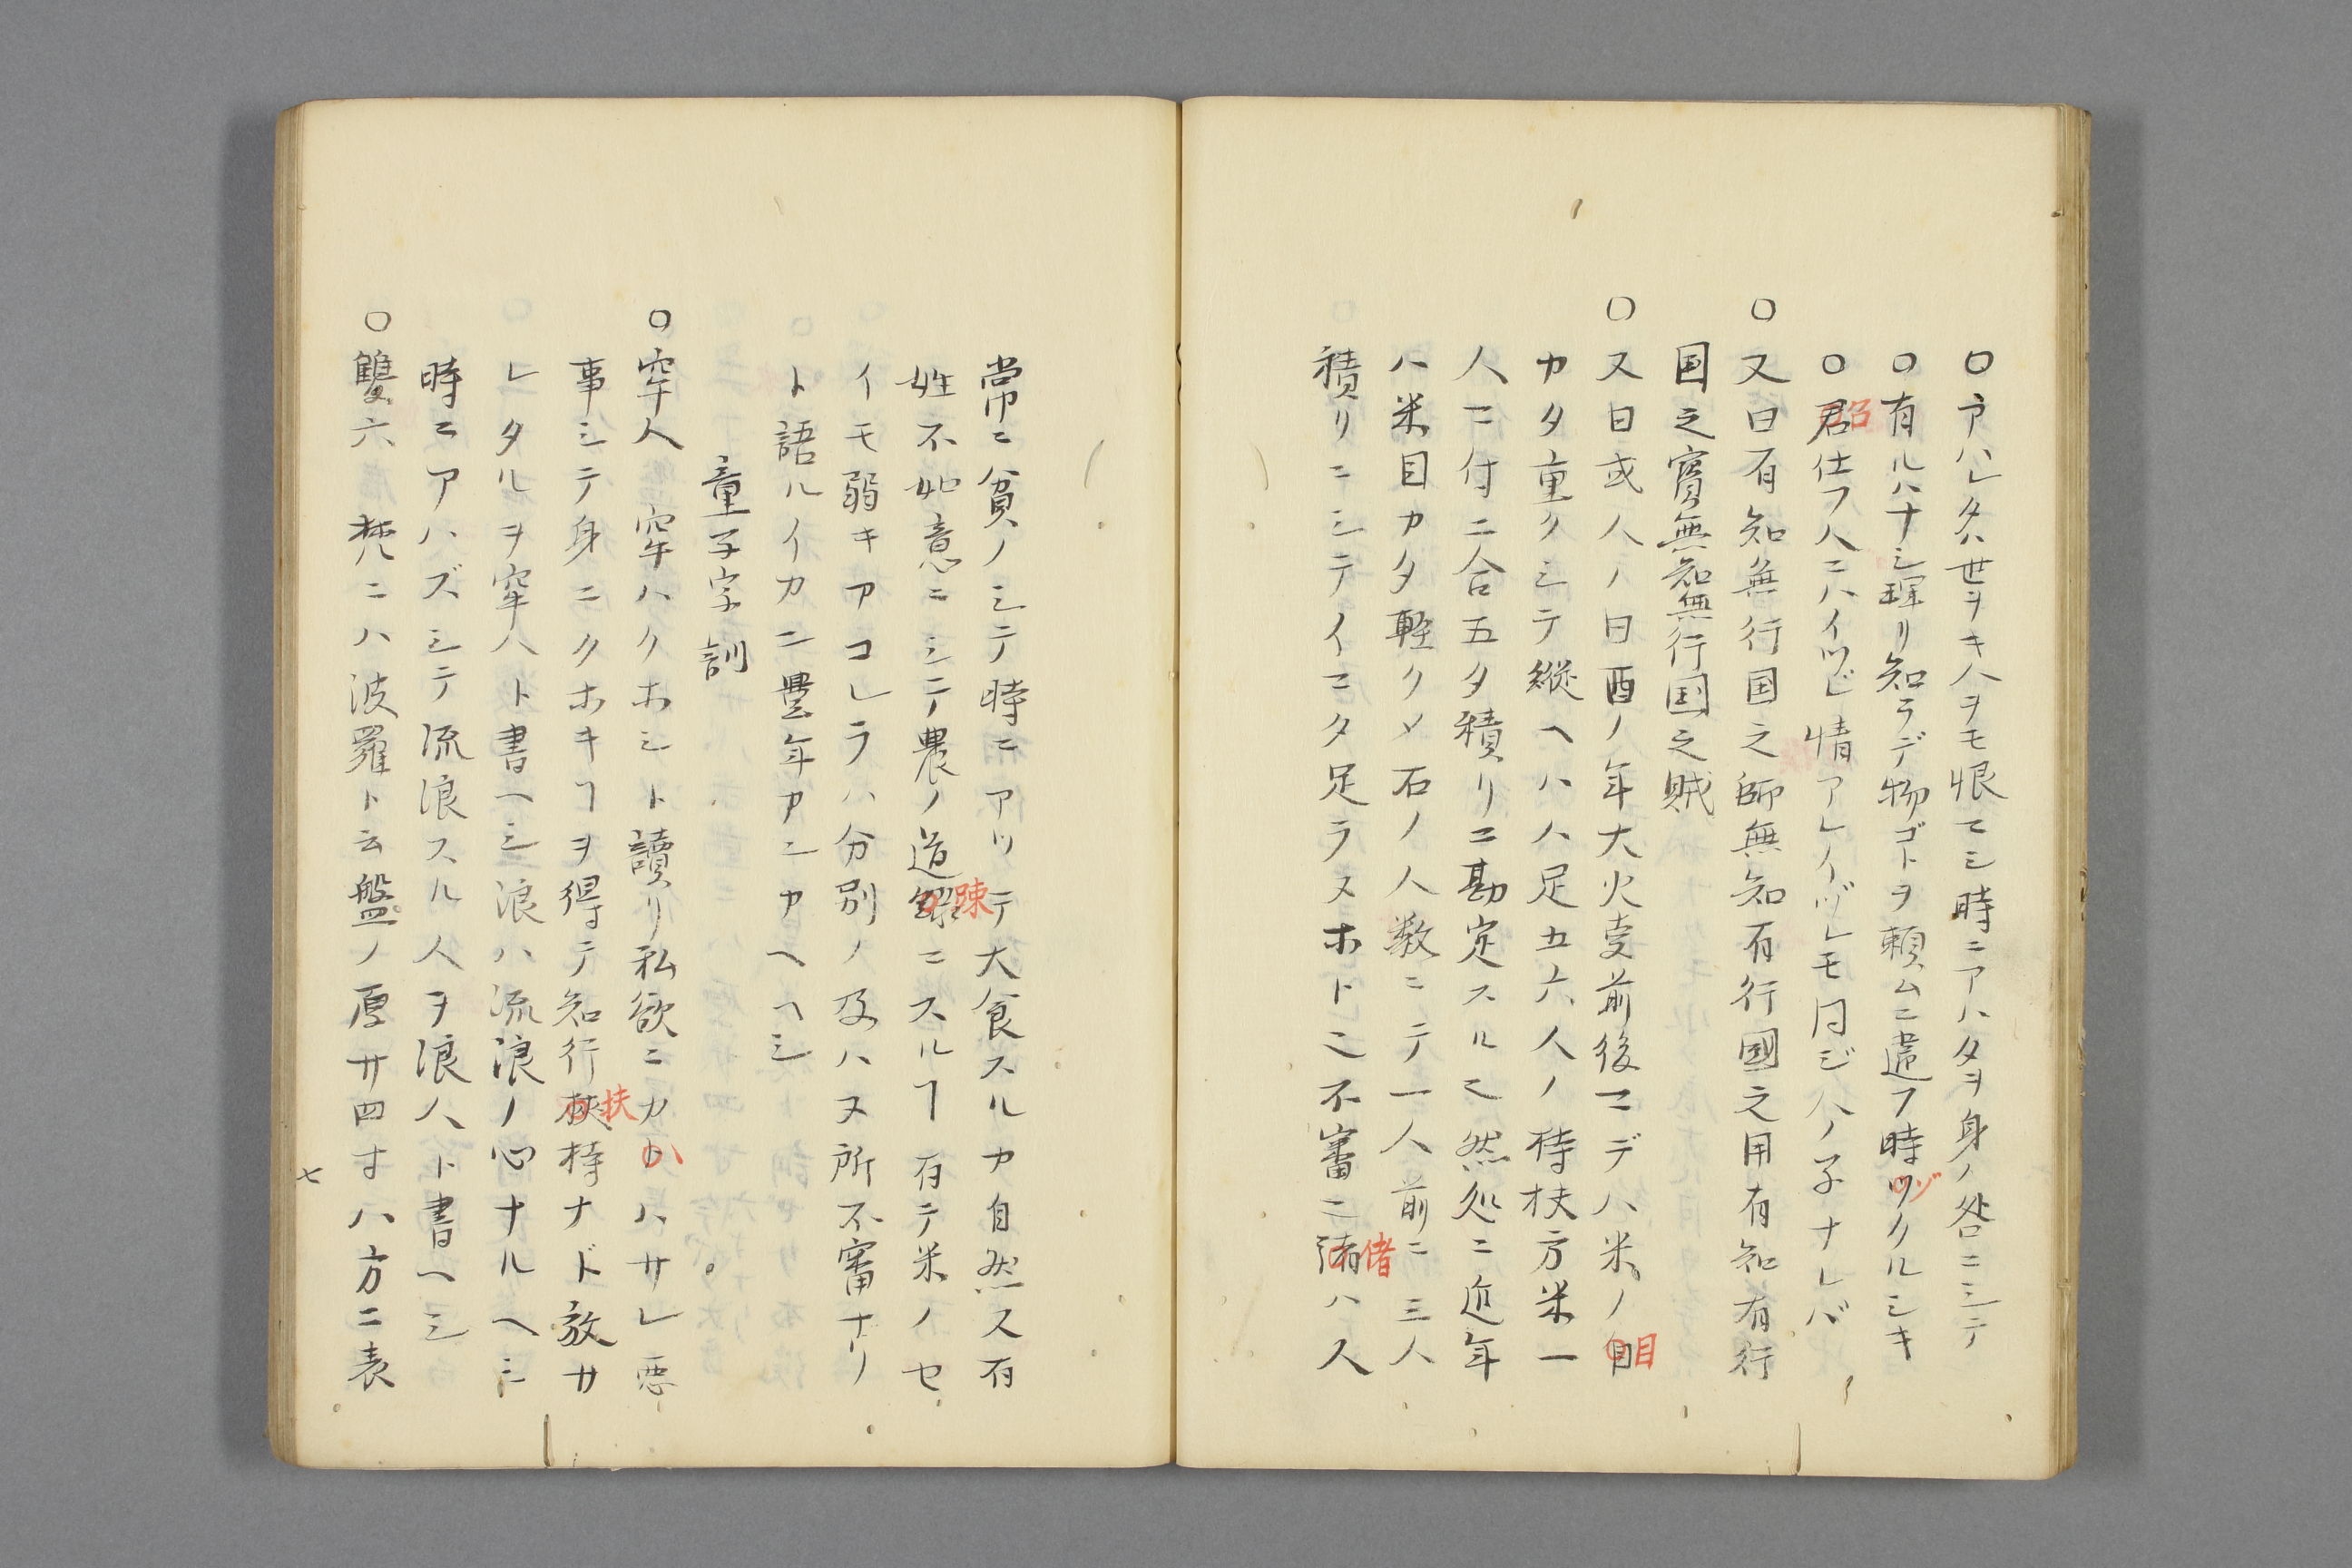 〇アハレタヾ世ヲキ人ヲモ恨マシ時ニアハタヲ身ノ咎ニシテ
〇有ルハナシ理リ知ラデ物ゴトヲ頼ムニ違フ時ツクルシキ
ゾ
〇君仕フ人ニハイツヒ情アレイヅレモ同ジ人ノ子ナレバ
召
〇又曰有知無行国之師無知有行國之用有知有行
国之寳無知無行国之賊
〇又曰或人ノ曰酉ノ年大火変前後マデハ米ノ目
目
カタ重クシテ縦ヘハ八足五六人ノ待扶方米一
人ニ付二合五夕積リニ勘定スルモ然処ニ近年
ハ米目カタ軽クメ石ノ人数ニテ一人前ニ三人
積リニシテイマタ足ラヌホトニ不審ニ ハス
偖
常ニ貧ノシテ時ニアリテ大食スルカ自然ス有
姓不如意ニシテ農ノ道 ニスルヿ有テ米ノセ
踈
イモ弱キアコレラハ分別ノ及ハヌ所不審ナリ
ト語ルイカニ豊年アニカヘヘシ
童子字訓
〇窂人 窂ハクホシト讀リ私欲ニカトハサレ悪
か
事シテ身ニクホキヿヲ得テ知行挾持ナド放サ
扶
レタルヲ窂人ト書ヘシ浪ハ流浪ノ心ナルヘシ
時ニアハズシテ流浪スル人ヲ浪人ト書ヘシ
〇雙六 梵ニハ波羅ト云盤ノ厚サ四寸八方ニ表
七